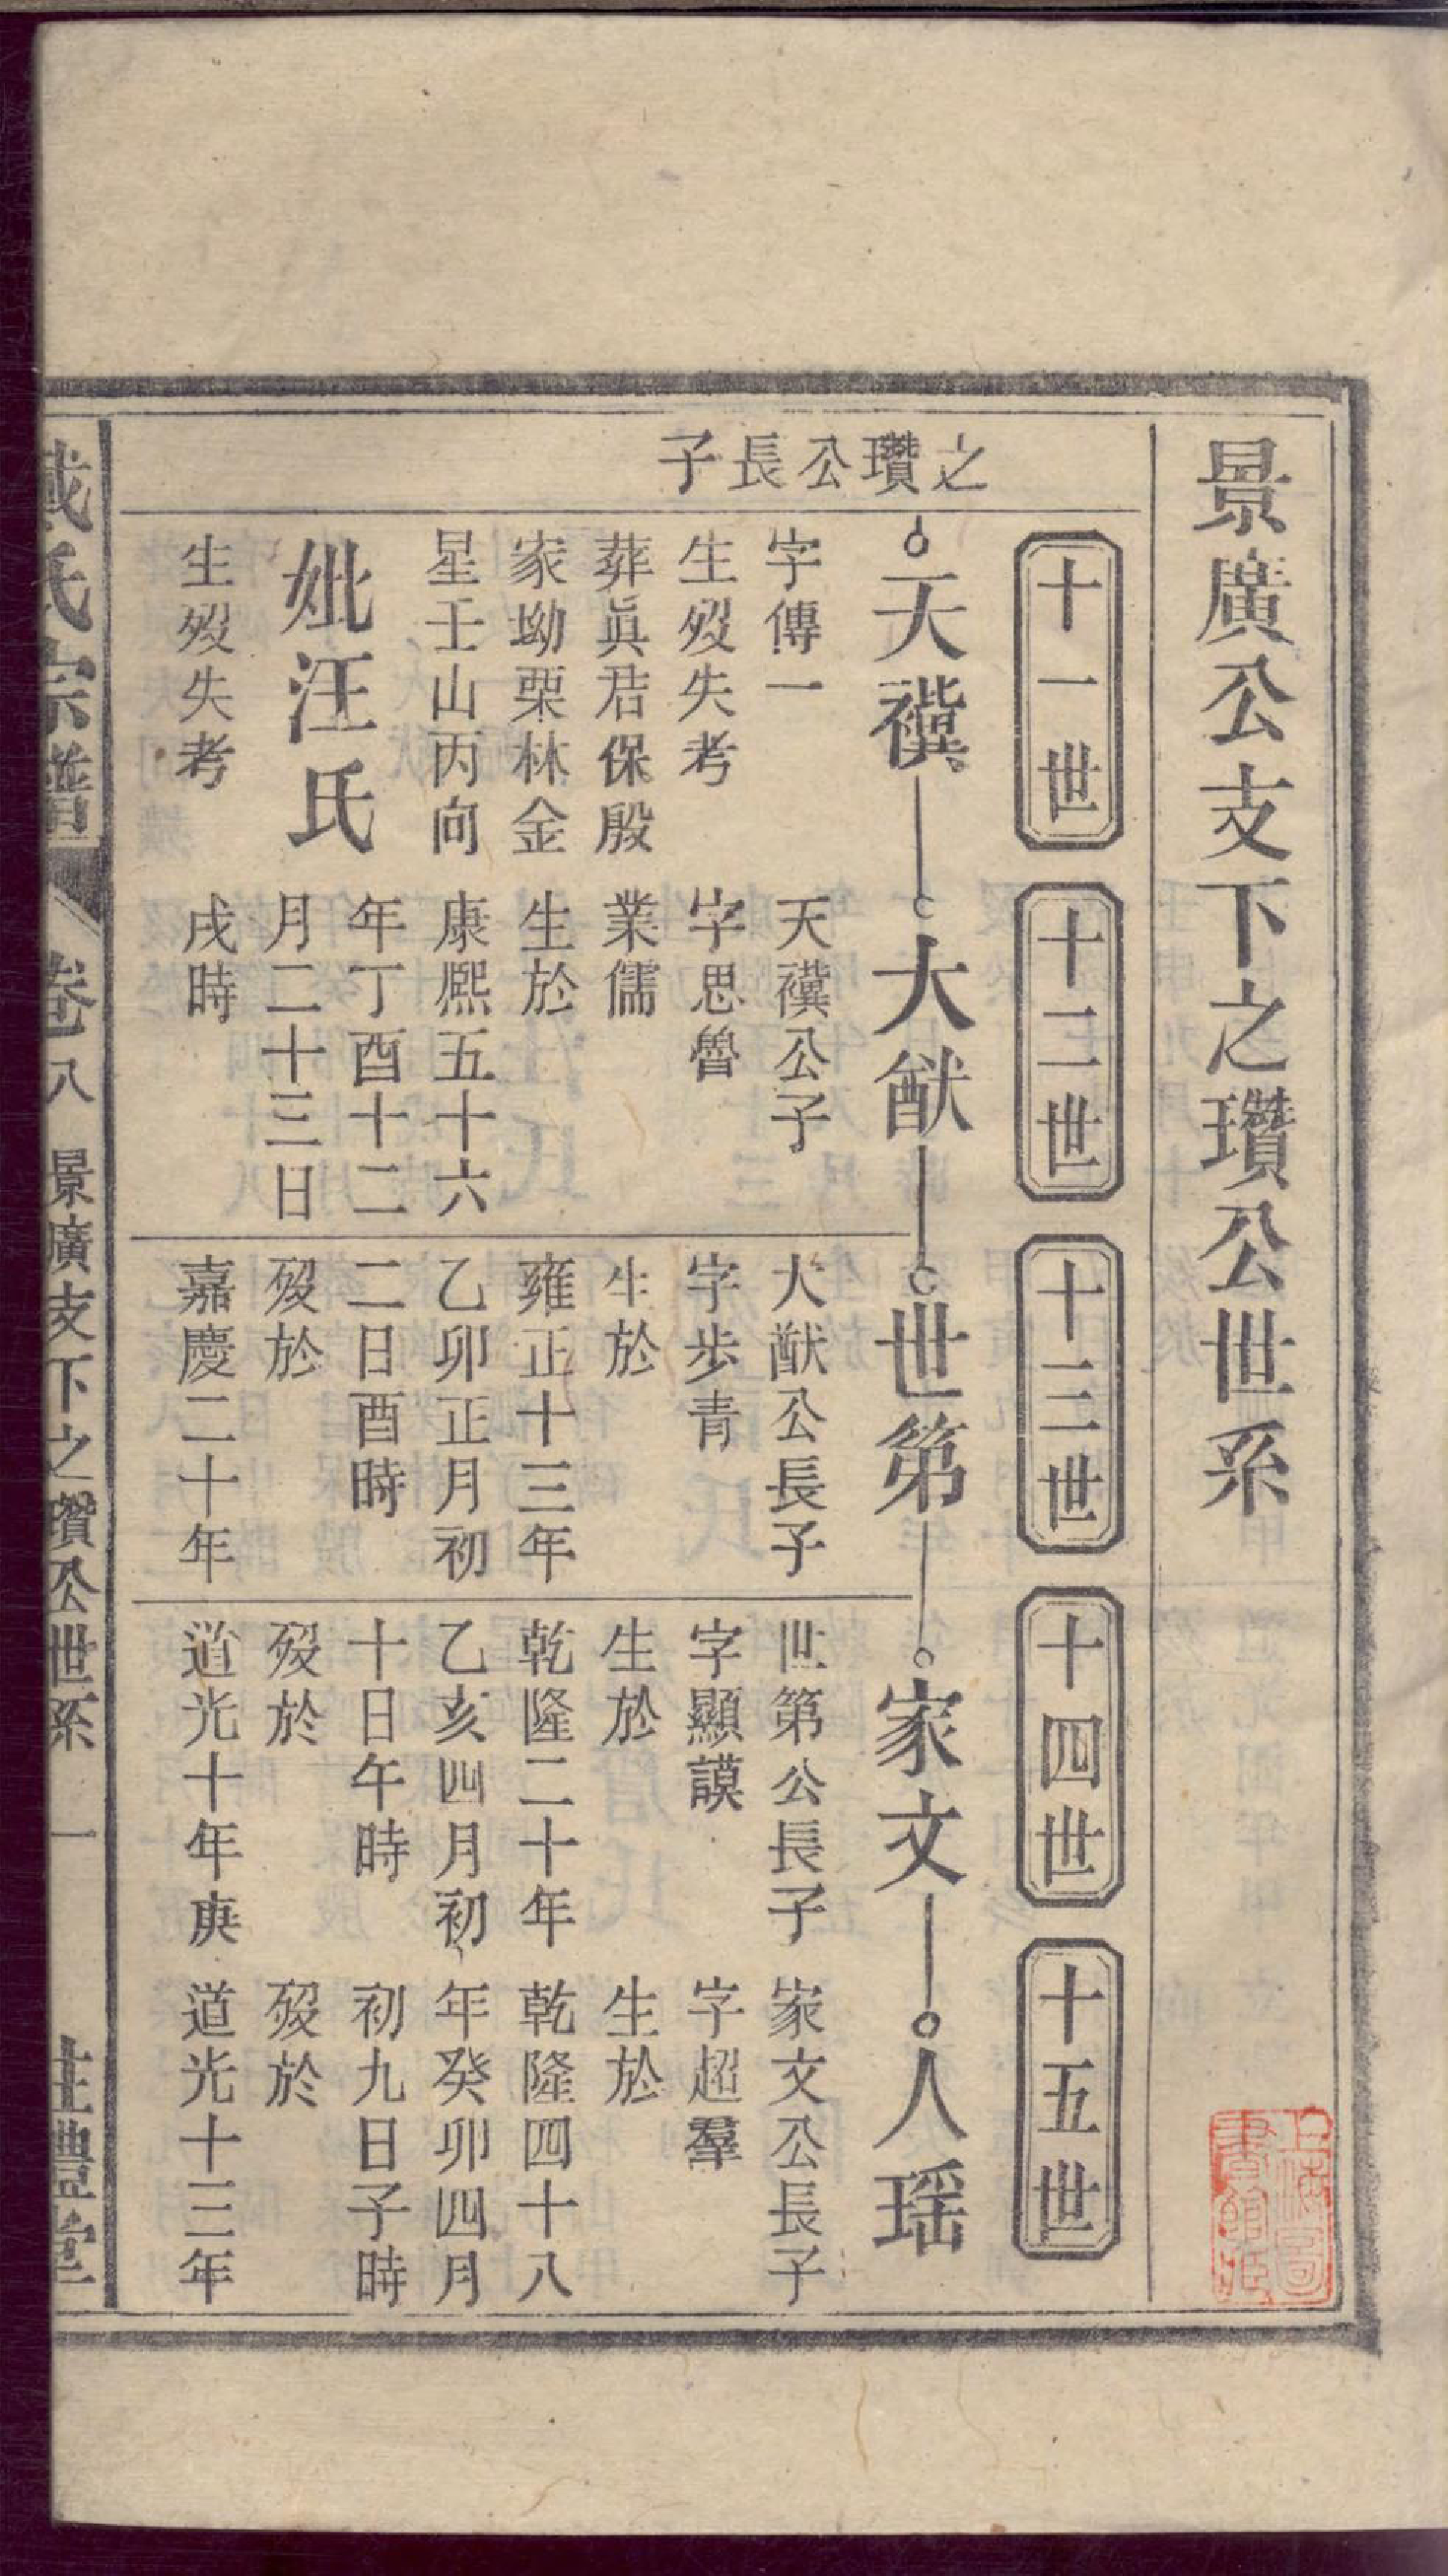 景廣公支下之瓚公世系
十一世
十二世
十三世
十四世
十五世
之瓚公長子
天禩
字傳一
生歿失考
葬眞君保殷
家坳栗林金
星壬山丙向
妣汪氏
生歿失考
大猷
天禩公子
字思魯
業儒
生於
康熈五十六
年丁酉十二
月二十三日
戌時
世第
大猷公長子
字步青
生於
雍正十三年
乙卯正月初
二日酉時
歿於
嘉慶二十年
家文
世第公長子
字顯謨
生於
乾隆二十年
乙亥四月初
十日午時
歿於
道光十年庚
人瑶
家文公長子
字超羣
生於
乾隆四十八
年癸卯四月
初九日子時
歿於
道光十三年
氏宗譜
卷八
景廣支下之瓚公世系
一
禮堂